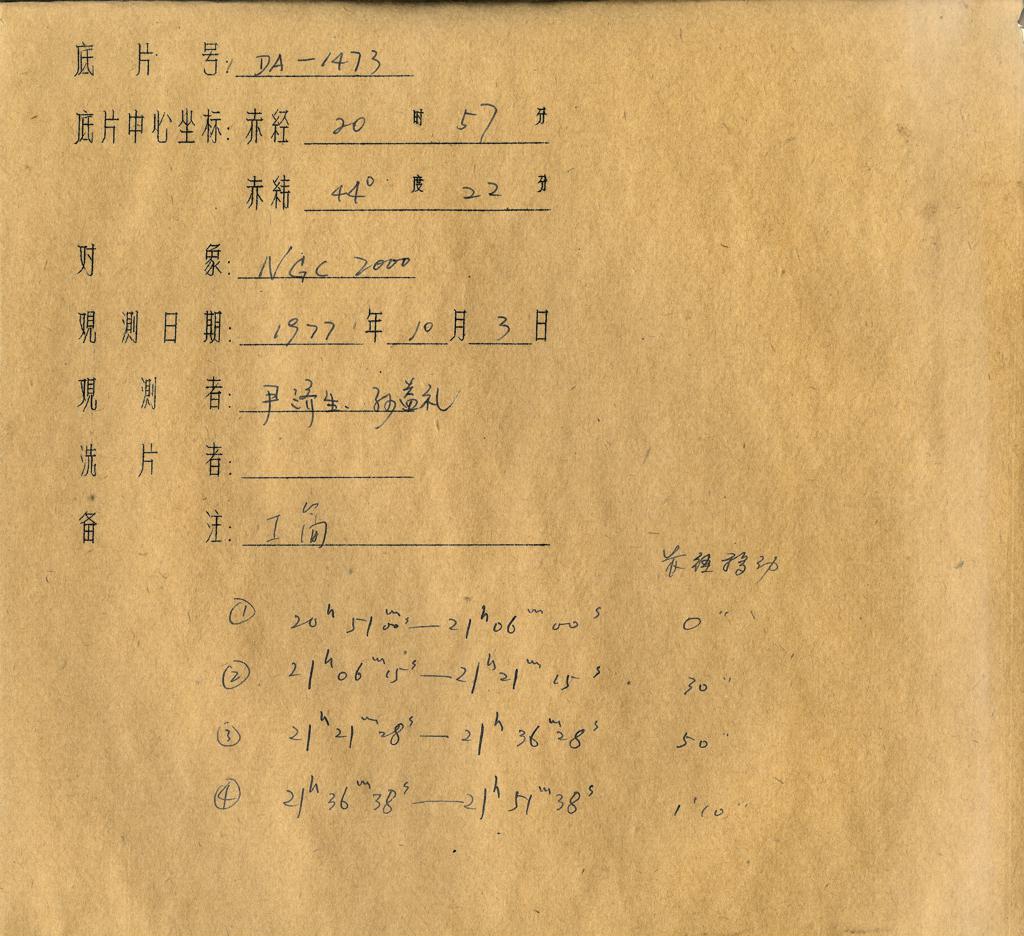 底片号: DA-1473
底片中心坐标: 赤经 20 时 57 分
赤纬 44° 度 22 分
对象: NGC 2000
观测日期: 1977 年 10 月 3 日
观测者: 尹济生、孙益礼
洗片者:
备注: I 间
赤经移动
① 20h 51m 00s — 21h 06m 00s 0"
② 21h 06m 15s — 21h 21m 15s 30"
③ 21h 21m 28s — 21h 36m 28s 50"
④ 21h 36m 38s — 21h 51m 38s 1'10"